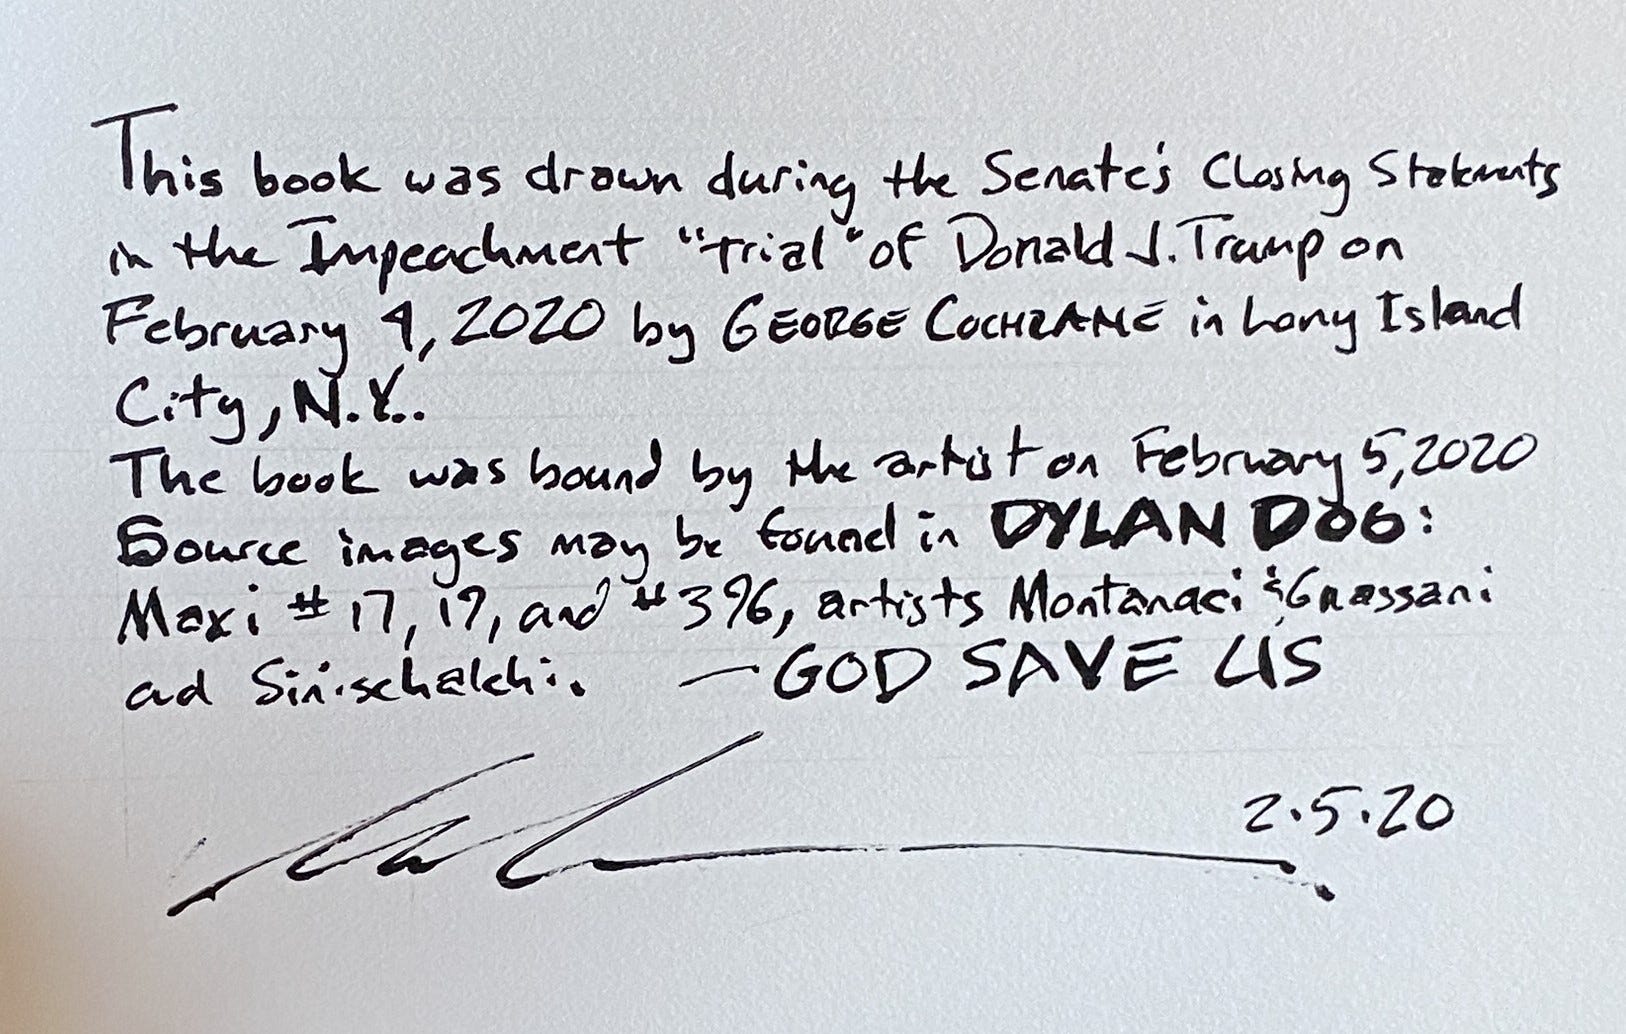 This book was drawn during the Senate's Closing Statements
in the Impeachment "trial" of Donald J. Trump on
February 4, 2020 by GEORGE COCHRANE in Long Island
City, N.Y..
The book was bound by the artist on February 5, 2020
Source images may be found in DYLAN DOG:
Maxi # 17, 19, and #396, artists Montanari & Grassani
ad Sinischalchi. — GOD SAVE US
2.5.20